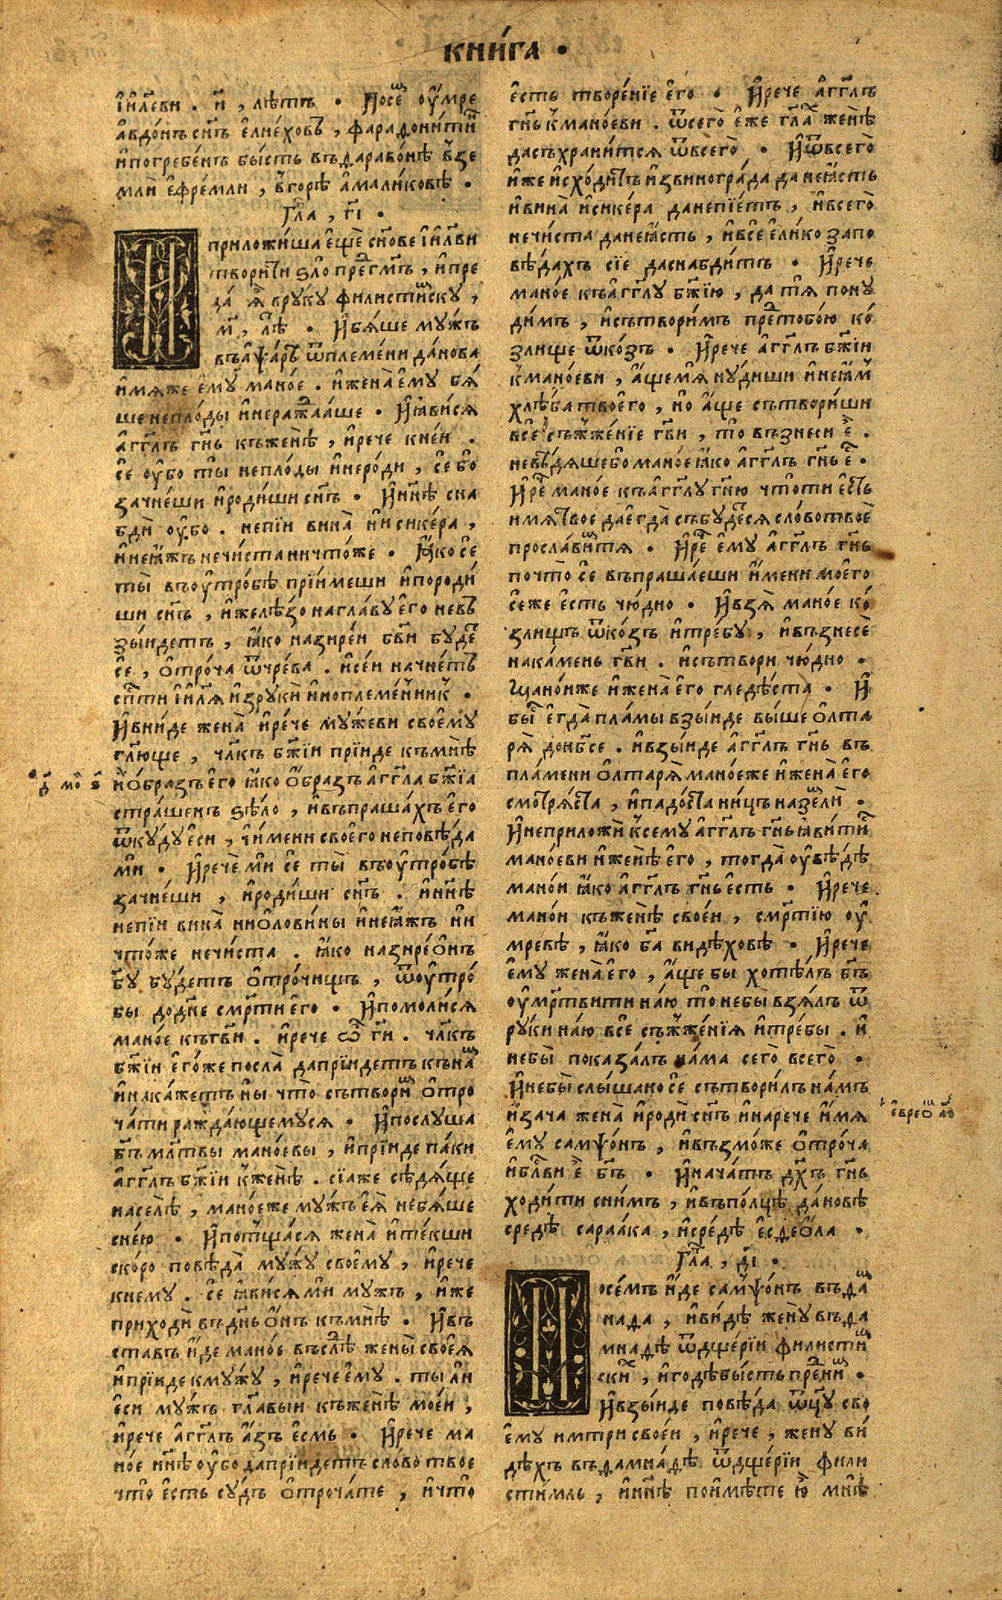 книга •
і҆и҃леви . и҃ , лѣтъ • Посе́ⷨ оу҆́мре
а҆вдо́нъ сн҃ъ е҆лиеховъ , фарадонитинⷩ
и҆погребенъ бы́сть въдараво́нѣ в҆зе
мли̂ е҆фре́мли , в҆горѣ̀ а҆малико́вѣ •
Гла҃ , г҃і •
И приложи́ша е҆щѐ сн҃ове і҆и҃лви
твори́ти ѕло̀ прⷣегм҃ъ , и҆пре
да́ ѧ҆̀ вруку филисти́йску ,
м҃ , лѣⷮ • И҆бѧ́ше мужъ
въа҆ѱа́ръ ѿплемени да́нова
и҆мѧже е҆му̀ мано́е . и҆жена̀ е҆му̀ бѧ́
ше непло́ды и҆неражⷣаа́ше • И҆ꙗ҆ви́сѧ
а҆гг҃лъ гн҃ь къженѣ̀ , и҆рече кне́и .
се оу҆́бо ты̀ непло́ды и҆неро́ди , се́ бо
зачне́ши и҆роди́ши сн҃ъ • И҆нн҃ѣ сна
бди̂ оу҆́бо . непі́и вина̀ ни сике́ра ,
и҆неꙗ҆́жъ нечи́ста ничто́же • Ꙗ҆́ко се́
ты̀ въоу҆тро́бѣ прїи́меши и҆породи́
ши сн҃ъ , и҆желѣ́зо наглаву̀ е҆го̀ невъ
зы́идетъ , ꙗ҆́ко назире́и бг҃ви будеⷮ
се́ , ѻ҆тро́ча ѿчре́ва . и҆се́и начне́тъ
сп҃сти і҆и҃лѧ и҆зруки̂ и҆ноплеме́нникъ •
И҆вни́де жена̀ и҆ре́че мужеви своему̀
гл҃юще , чл҃къ бж҃їи прїи́де къмнѣ̀
и҆ѻ҆́бразъ е҆го̀ ꙗ҆́ко ѻ҆́бразъ а҆гг҃ла бж҃їа
стра́шенъ ѕѣло̀ , и҆въпраша́хъ е҆го̀
ѿкуду е҆си , и҆и҆́мени своего̀ неповѣ́да
ми • И҆речѐ ми̂ се́ ты̀ въоу҆тро́бѣ
зачне́ши , и҆роди́ши сн҃ъ . и҆нн҃ѣ
непі́и вина̀ ниѻ҆лови́ны и҆неꙗ҆́жъ ни
что́же нечи́ста . ꙗ҆́ко назире́ѻ҆нъ
бг҃у будетъ ѻ҆тро́чищъ , ѿоу҆тро́
бы додн҃е сме́рти е҆го̀ • И҆помоли́сѧ
мано́е къгв҃и . и҆рече ѽ гй . чл҃къ
бж҃їи е҆го́же посла̀ дапрїи́детъ кънаⷨ
и҆нака́жетъ ны̀ что сътвори́мъ ѻ҆тро
ча́ти ражда́ющемусѧ • И҆послу́ша
бг҃ъ мл҃твы мано́евы , и҆прїи́де па́ки
а҆гг҃лъ бж҃їи к҆женѣ̀ . сїа́же сѣдѧ́ще
населѣ̀ , мано́еже мужъ е҆ѧ̀ небѧ́ше
сне́ю • И҆потща́сѧ жена̀ и҆те́кши
ско́ро повѣ́да мужу своему̀ , и҆рече
кнему . се́ ꙗ҆ви́сѧ ми мужъ , и҆́же
приходи̂ въдн҃ь ѻ҆́нъ къмнѣ̀ • И҆въ
ста́въ и҆́де мано́е въслѣⷣ жены̀ своеѧ̀
и҆прїи́де к мужу , и҆рече е҆му . ты̀ ли
е҆си̂ мужъ гл҃авыи къженѣ̀ мое́и ,
и҆рече а҆гг҃лъ а҆́зъ е҆́смь • И҆рече ма
но́е нн҃ѣ оу҆́бо дапрїи́детъ сло́во твое
что е҆́сть судъ ѻ҆троча́те , и҆что̀
д҃ мой ѕ҃
е҆́сть творе́нїе е҆го̀ • И҆рече а҆гг҃лъ
гн҃ь к҆мано́еви . ѿсего̀ е҆́же гл҃аⷯ женѣ̀
дасъхрани́тсѧ ѿвсего̀ • И҆ѿвсего̀
и҆́же и҆схо́дитъ и҆звиногра́да да неꙗ҆́сть
и҆вина̀ и҆сике́ра данепїе́тъ , и҆всего̀
нечи́ста данеꙗ҆́сть , и҆все е҆ли́ко запо
вѣ́дахъ сїе даснабди́тъ • И҆рече
мано́е къа҆гг҃лу бж҃їю , да тѧ пону
ди́мъ , и҆сътвори́мъ преⷣтобо́ю ко́
злище ѿко́зъ • И҆рече а҆гг҃лъ бж҃їи
к҆мано́еви , а҆́ще мѧ̀ нудиши и҆неꙗ҆́м
хлѣ́ба твоего̀ , но а҆́ще сътвори́ши
все́ съжже́нїе гв҃и , то възнеси̂ еⷤ .
невѣ́дѧше бо мано́е ꙗ҆́ко а҆гг҃лъ гн҃ь еⷭ •
И҆реⷱ мано́е къа҆гг҃лу гн҃ю что́ти е҆́сть
и҆мѧ̀ твоѐ дае҆гда̀ събудетсѧ сло́во твоѐ
просла́вимтѧ • И҆реⷱ е҆му̀ а҆гг҃лъ гн҃ь
почто̀ се въпраша́еши и҆́мени моего̀
се́же е҆́сть чю́дно • И҆взѧ̀ мано́е ко́
злищъ ѿко́зъ и҆тре́бу , и҆възнесѐ
нака́мень гв҃и . и҆сътвори чю́дно •
Щано́иже и҆жена̀ е҆го̀ гледѣ́ста • И҆
быⷭ е҆гда̀ пла́мы взы́иде вы́ше ѻ҆лта
рѧ̀ донб҃се . и҆взы́иде а҆гг҃лъ гн҃ь въ
пла́мени ѻ҆лтарѧ̀ мано́еже и҆жена̀ е҆го
смотрѧ́ста , и҆падо́ста ни́цъ назе́мли •
И҆неприложи̂ к҆сему̀ а҆гг҃лъ гн҃ь ꙗ҆ви́тисѧ
мано́еви и҆женѣ̀ е҆го̀ , тогда̀ оу҆вѣ́дѣ
мано́и ꙗ҆́ко а҆гг҃лъ гн҃ь е҆́сть • И҆рече
мано́и къженѣ̀ свое́и , сме́ртїю оу҆́
мревѣ , ꙗ҆́ко бг҃а видѣ́ховѣ • И҆рече
е҆му̀ жена̀ е҆го̀ , а҆́ще бы хотѣ́лъ бг҃ъ
оу҆мртвити на́ю то небы̀ взѧ́лъ ѿ
руки на́ю все съжже́нїѧ и҆тре́бы . и҆
небы̀ показа́лъ на́ма сего̀ всего̀ •
И҆небы̀ слы́шано се сътвори́лъ на́мъ
и҆зача̀ жена̀ и҆роди̂ сн҃ъ и҆нарече и҆́мѧ
е҆му̀ самѱо́нъ , и҆възмо́же ѻ҆тро́ча
и҆блг҃ви еⷤ бг҃ъ • И҆нача́тъ дх҃ъ гн҃ь
ходи́ти сни́мъ , и҆въпо́лцѣ да́новѣ
средѣ̀ сараа́ка , и҆средѣ̀ е҆сдеѻ҆́ла •
Гла҃ , д҃і •
Посе́мъ и҆́де самѱо́нъ въдаⷨ
на́да , и҆ви́дѣ жену̀ въда
мна́дѣ ѿдще́рїи филистиⷨ
скиⷯ , и҆годѣ̀бы́сть преⷣниⷨ •
И҆взы́иде повѣ́да ѿц҃у сво
е҆му и҆мт҃ри свое́и , и҆рече , жену̀ ви́
дѣхъ въдамна́дѣ ѿдще́рїи фили
сти́мль , и҆нн҃ѣ поимѣ́те ю҆̀ мнѣ̀